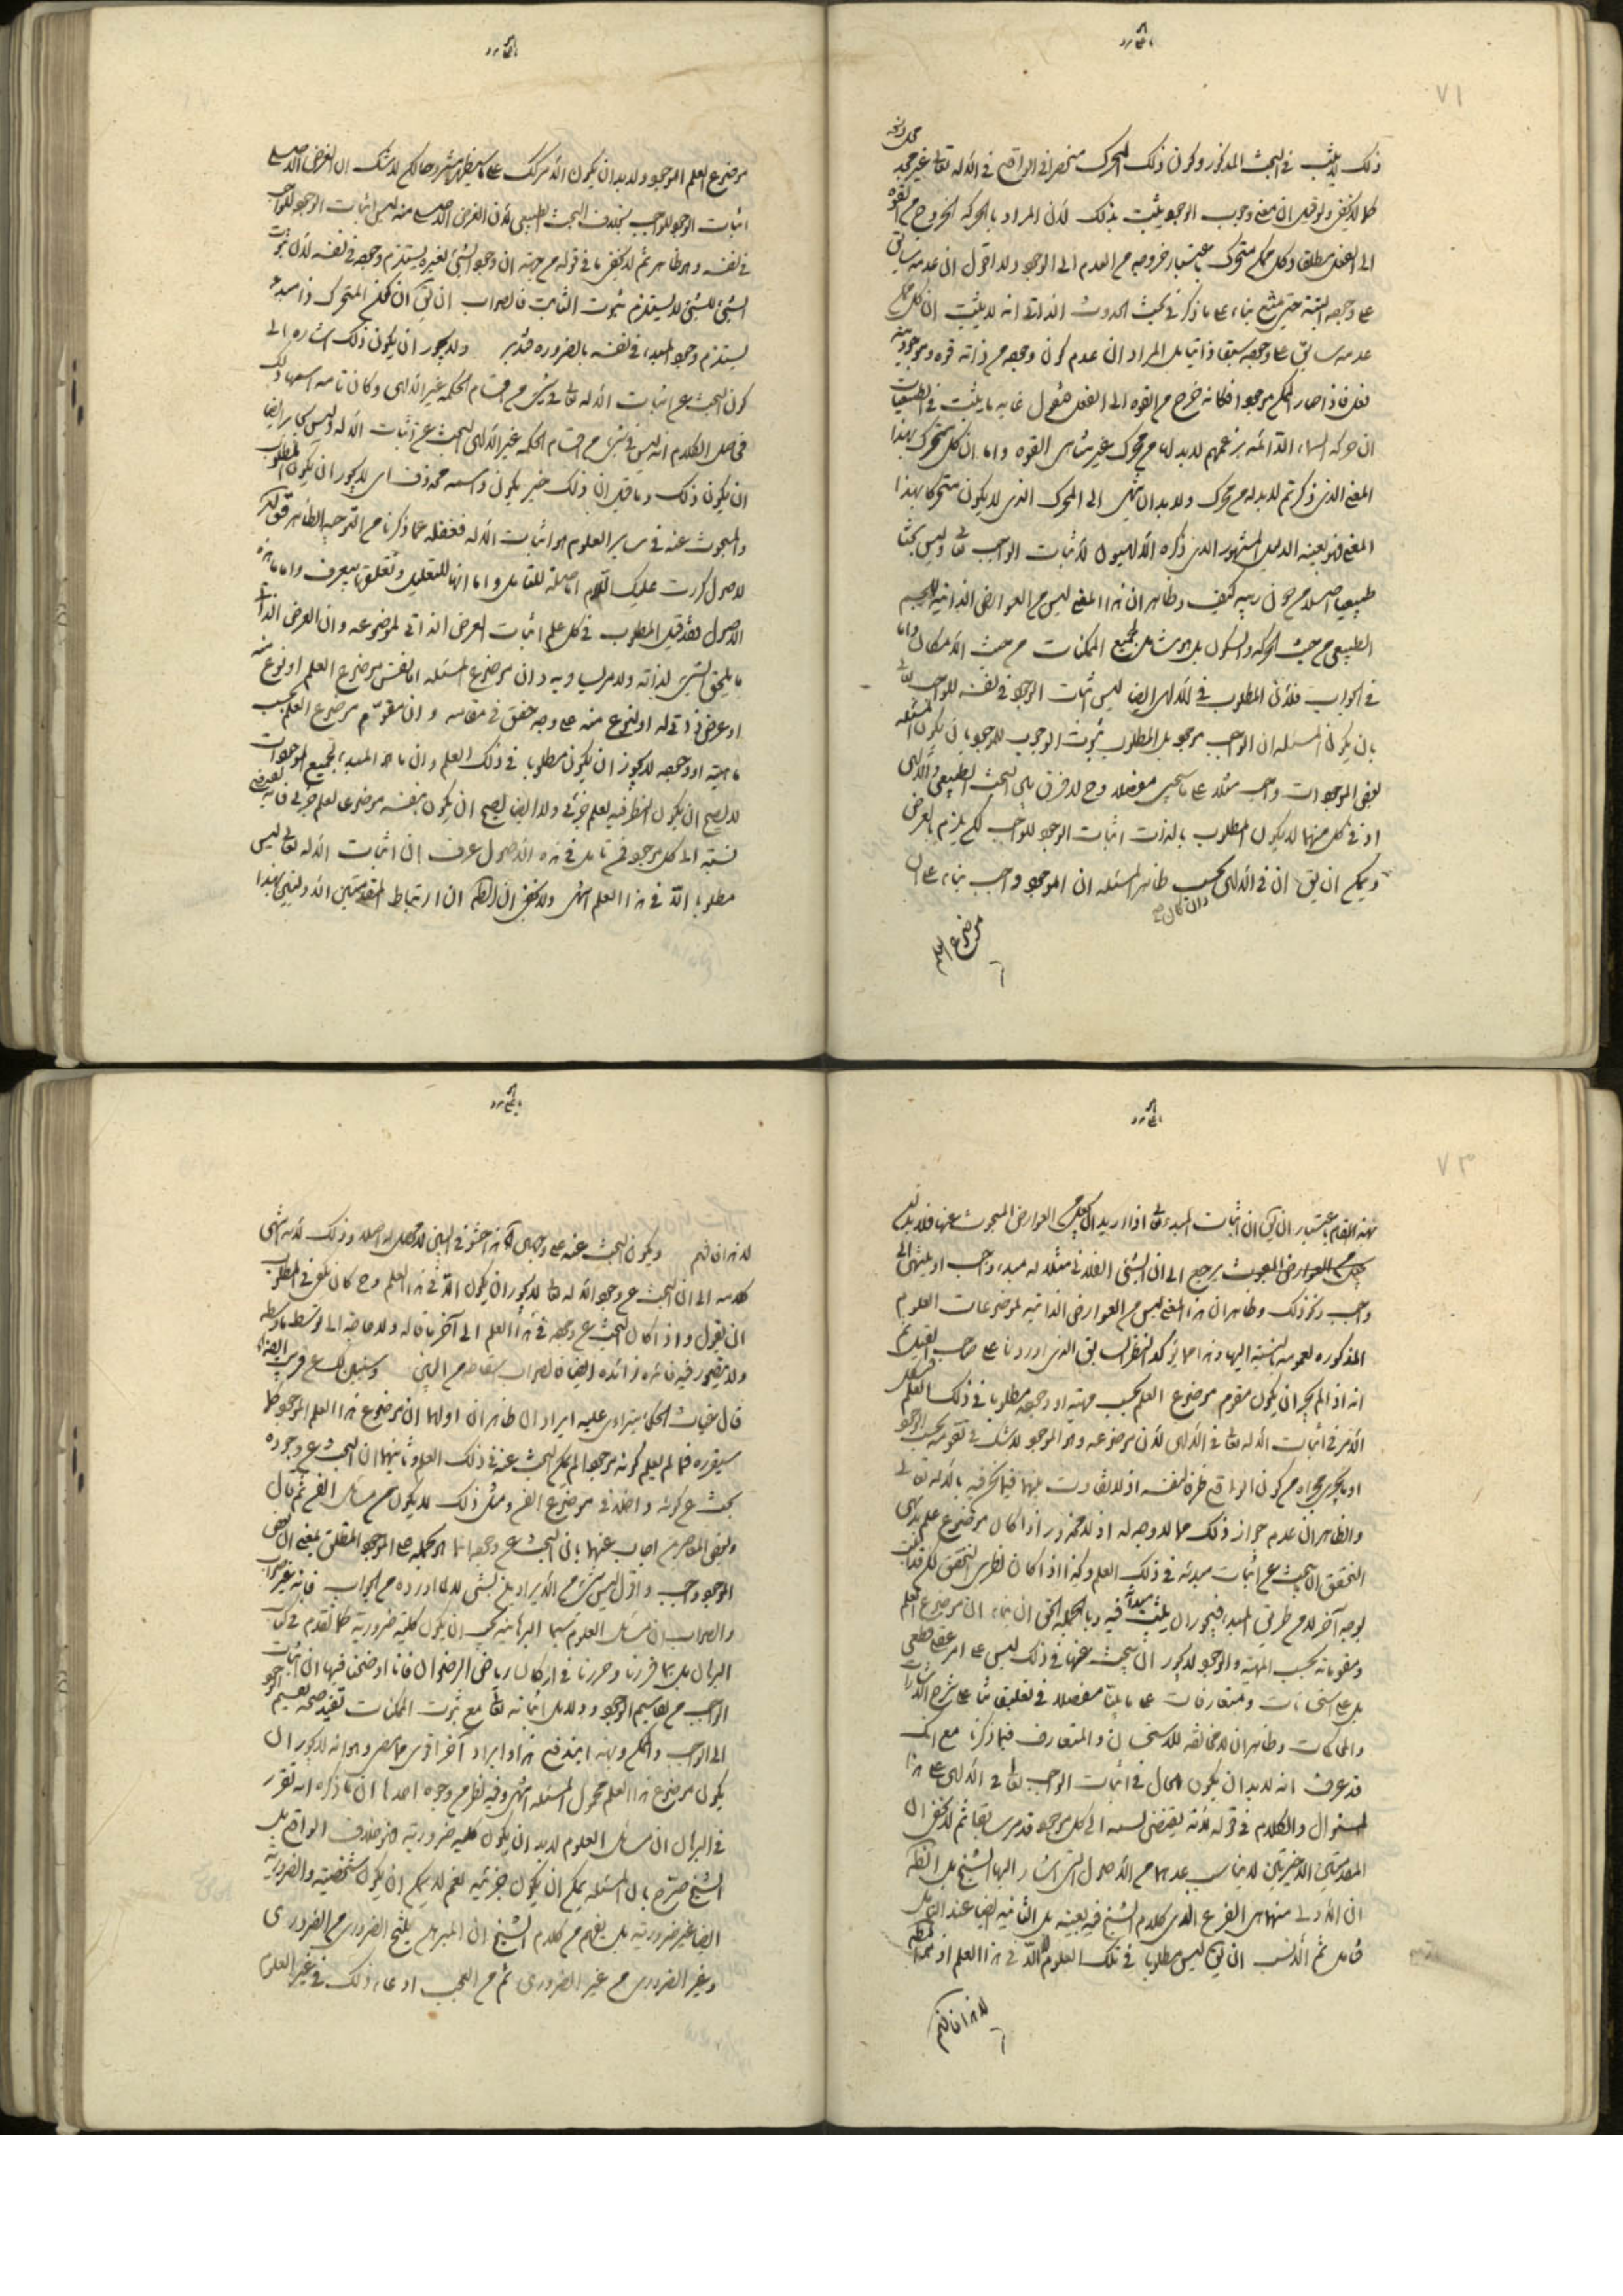 ٧١
ذلك لم يثبت في البحث المذكور وكون ذلك المحرك منحصرا في الواقع في الاله تعالى غير مجد
كما لا يخفى ولو قيل ان معنى وجوب الوجود يثبت بذلك لان المراد بالحركة الخروج من القوة
الى الفعل مطلقا وكل ممكن متحرك باعتبار خروجه من العدم الى الوجود ولا اقول ان عدمه سابق
على وجوده البتة حتى يمنع بناء على ما ذكر في بحث الحدوث الذاتي انه لا يثبت ان كل ممكن
عدمه سابق على وجوده سبقا ذاتيا بل المراد ان عدم كون وجوده من ذاته قوة وموجوديته
فعل فاذا صار الممكن موجودا فكانه خرج من القوة الى الفعل فنقول غاية ما يثبت في الطبيعيات
ان حركة السماء الدائمة بزعمهم لا بد لها من محرك غير متناهى القوة واما ان كل متحرك بهذا
المعنى الذى ذكرتم لا بد له من محرك ولا بد ان ينتهى الى المحرك الذى لا يكون متحركا بهذا
المعنى فهو بعينه الدليل المشهور الذى ذكره الالهيون لاثبات الواجب تعالى وليس بحثا
طبيعيا اصلا من حيث كيف وظاهر ان هذا المعنى ليس من العوارض الذاتية للجسم
الطبيعى من حيث الحركة والسكون بل هو شامل لجميع الممكنات من حيث الامكان واما
في الجواب فلان المطلوب في الالهى ايضا ليس اثبات الوجود في نفسه للواجب تعالى
بان يكون المسئلة ان الواجب موجود بل المطلوب ثبوت الوجوب للموجود بان يكون المسئلة
بعض الموجودات واجب مثلا على ما سيجئ مفصلا وح لا فرق بين البحث الطبيعى والالهى
اذ في كل منهما لا يكون المطلوب بالذات اثبات الوجود للواجب لكن يلزم بالعرض
ويمكن ان يق ان في الالهى بحسب ظاهر المسئلة ان الموجود واجب بناء على ان
وان كان
موضوع العلم
موضوع العلم الموجود ولا بد ان يكون الامر كذلك على ما سيظهر مشروحا لكن لا شك ان الغرض الاصلى
اثبات الوجود للواجب بخلاف البحث الطبيعى لان الغرض الاصلى منه ليس اثبات الوجود للواجب
في نفسه وهو ظاهر ثم لا يخفى ما في قوله من جهة ان وجود الشئ لغيره يستلزم وجوده في نفسه لان ثبوت
الشئ للشئ لا يستلزم ثبوت الثابت فالصواب ان يق ان كون المتحرك ذا مبدء
يستلزم وجود المبدء في نفسه بالضرورة فتدبر ولا يجوز ان يكون ذلك اشارة الى
كون البحث عن اثبات الاله تعالى في شئ من اقسام الحكمة غير الالهى وكان تامة
فحاصل الكلام انه ليس في شئ من اقسام الحكمة غير الالهى البحث عن اثبات الاله وليس بجائز ايضا
ان يكون ذلك وما قيل ان ذلك خبر يكون واسمه محذوف اى لا يجوز ان يكون المطلوب
والمبحوث عنه في ساير العلوم هو اثبات الاله فغفلة عما ذكرنا من التوجيه الظاهر
لاصول كررت عليك اللام اما صلة للتامل واما انها للتعليل وتعلق بيعرف واما ما هذه
الاصول فقد قيل المطلوب في كل علم اثبات العرض الذاتى لموضوعه وان العرض الذاتى
ما يلحق الشئ لذاته ولامر يساويه وان موضوع المسئلة اما نفس موضوع العلم او نوع منه
او عرض ذاتى له او لنوع منه على وجه حقق في مقامه وان مقوم موضوع العلم بحسب
ماهيته او وجوده لا يجوز ان يكون مطلوبا في ذلك العلم وان ما هو المبدء لجميع الموجودات
لا يصح ان يكون النظر فيه لعلم جزئى ولا ايضا يصح ان يكون بنفسه موضوعا لعلم جزئى فانه يقتضى
نسبة الى كل موجود فمن تامل في هذه الاصول عرف ان اثبات الاله تعالى ليس
مطلوبا الا في هذا العلم انتهى ولا يخفى ان الظاهر ان ارتباط المقدمتين الاوليين بهذا
٧٣
بهذا المقام باعتبار ان يق ان اثبات المبدء تعالى اذا اريد ان يجعل من العوارض المبحوث عنها فلا بد
يرجع الى ان الشئ الفلانى مثلا له مبدء واجب او ينتهى الى
واجب ونحو ذلك وظاهر ان هذا المعنى ليس من العوارض الذاتية لموضوعات العلوم
المذكورة لعمومه بالنسبة اليها وهذا مما يؤكد النظر السابق الذى اوردناه على صاحب
انه اذا لم يجز ان يكون مقوم موضوع العلم بحسب مهيته او وجوده مطلوبا في ذلك العلم
الامر في اثبات الاله تعالى في الالهى لان موضوعه وهو الموجود لا شك في تقومه بحسب الوجود
او ما يجرى مجراه من كون الواقع ظرفا لنفسه اذ لا تفاوت بينهما فيما نحن فيه بالاله تعالى
والظاهر ان عدم جواز ذلك مما لا وجه له اذ لا محذور اذا كان موضوع علم بديهى
التحقق ان يبحث عن اثبات مبدئه في ذلك العلم وكذا اذا كان نظرى التحقق لكن
بوجه آخر لا من طريق المبدء فيجوز ان يثبت مبدأه فيه وبالجملة الحق ان بناء ان موضوع العلم
ومقوماته بحسب المهية والوجود لا يجوز ان يبحث عنها في ذلك ليس على امر عقلى قطعى
بل على استحسانات ومتعارفات على ما بيناه مفصلا في تعليقاتنا على شرح الاشارات
والمحاكمات وظاهر ان لا مخالفة للاستحسان والمتعارف فيما ذكرنا مع انك
قد عرفت انه لا بد ان يكون الحال في اثبات الواجب تعالى في الالهى على هذا
المنوال والكلام في قوله لانه يقتضى نسبة الى كل موجود قد مر سابقا ثم لا يخفى ان
المقدمتين الاخيرتين لا يناسب عدهما من الاصول التى اشار اليها الشيخ بل الظاهر
ان الاولى منهما هى الفرع الذى كلام الشيخ فيه بعينه بل الثانية ايضا عند التامل
فتامل ثم الانسب ان يق ليس مطلوبا في تلك العلوم الا في هذا العلم
لا يقال
ويكون البحث عنه على وجهين آه هذا حشو في البين لا محصل له اصلا وذلك لانه انتهى
كلامه الى ان البحث عن وجود الاله تعالى لا يجوز ان يكون الا في هذا العلم وح كان يكفى في المطلوب
ان يقول واذا كان البحث عن وجوده في هذا العلم الى آخر ما قاله ولا حاجة الى توسيط ما وسطه
ولا يتصور فيه فائدة زائدة ايضا فالصواب اسقاطه من البين وسنبين لك عن قريب ايضا
قال غياث الحكماء يتراءى عليه ايرادان ظاهران اولهما ان موضوع هذا العلم الموجود كما
سيقرره فما لم يعلم كونه موجودا لم يمكن البحث عنه في ذلك العلم وثانيهما ان البحث عن وجوده
بحث عن كونه داخلا في موضوع الفن ومثل ذلك لا يكون من مسائل الفن ثم قال
وبعض المعاصرين اجاب عنهما بان البحث عن وجوده انما هو بحمله على الموجود المطلق بمعنى ان بعض
الموجود واجب واقول ليس شئ من الايرادين بشئ لما اورده من الجواب فانه غير صواب
والصواب ان مسائل العلوم سيما البرهانية يجب ان يكون كلية ضرورية كما تقدم في كتاب
البرهان بل بما قررنا وحررنا في اركان رياض الرضوان فانا اوضحنا فيها ان اثبات
الواجب من تقاسيم الوجود ودلايل اثباته تعالى مع ثبوت الممكنات تفيد صحة تقسيم الموجود
الى الواجب والممكن وبهذا يندفع هذا وايراد آخر اقوى مما مر وهو انه لا يجوز ان
يكون موضوع هذا العلم محمول المسئلة انتهى وفيه نظر من وجوه احدها ان ما ذكره انه تقرر
في البرهان ان مسائل العلوم لا بد ان يكون كلية ضرورية فهو خلاف الواقع بل
الشيخ صرح بان المسئلة يمكن ان يكون جزئية نعم لا يمكن ان يكون شخصية والضرورية
ايضا غير ضرورية بل يفهم من كلام الشيخ ان المبرهن ينتج الضرورى من الضرورى
وغير الضرورى من غير الضرورى ثم من العجب ادعاء ذلك في غير العلوم